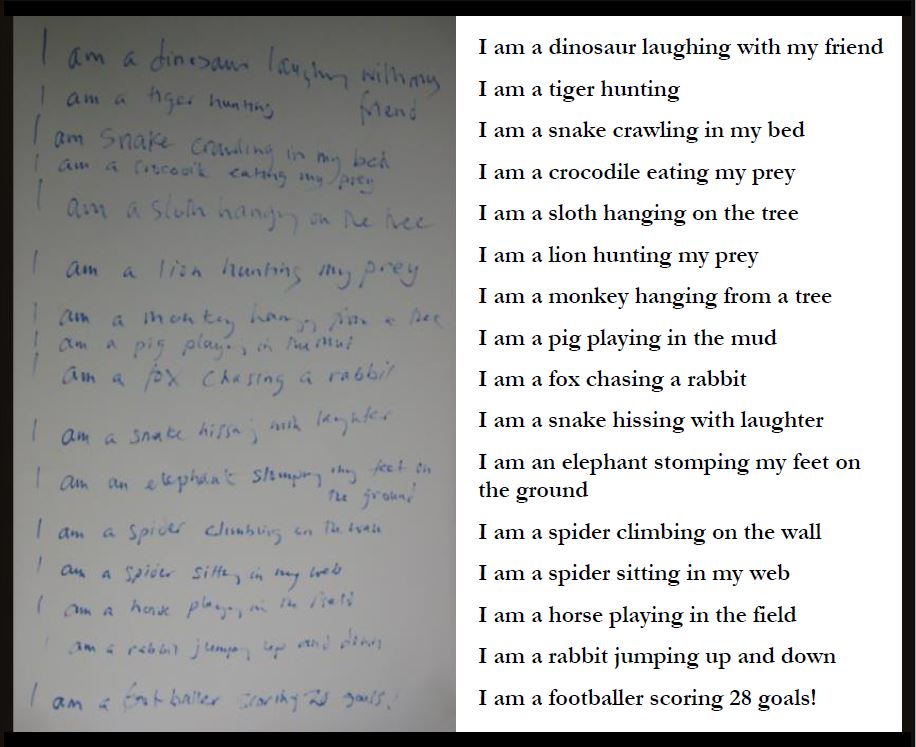 I am a dinosaur laughing with my
friend
I am a tiger hunting
I am snake crawling in my bed
I am a crocodile eating my prey
I am a sloth hanging on the tree
I am a lion hunting my prey
I am a monkey hanging from a tree
I am a pig playing in the mud
I am a fox chasing a rabbit
I am a snake hissing with laughter
I am an elephant stomping my feet on
the ground
I am a spider climbing on the wall
I am a spider sitting in my web
I am a horse playing in the field
I am a rabbit jumping up and down
I am a footballer scoring 28 goals!
I am a dinosaur laughing with my friend
I am a tiger hunting
I am a snake crawling in my bed
I am a crocodile eating my prey
I am a sloth hanging on the tree
I am a lion hunting my prey
I am a monkey hanging from a tree
I am a pig playing in the mud
I am a fox chasing a rabbit
I am a snake hissing with laughter
I am an elephant stomping my feet on
the ground
I am a spider climbing on the wall
I am a spider sitting in my web
I am a horse playing in the field
I am a rabbit jumping up and down
I am a footballer scoring 28 goals!